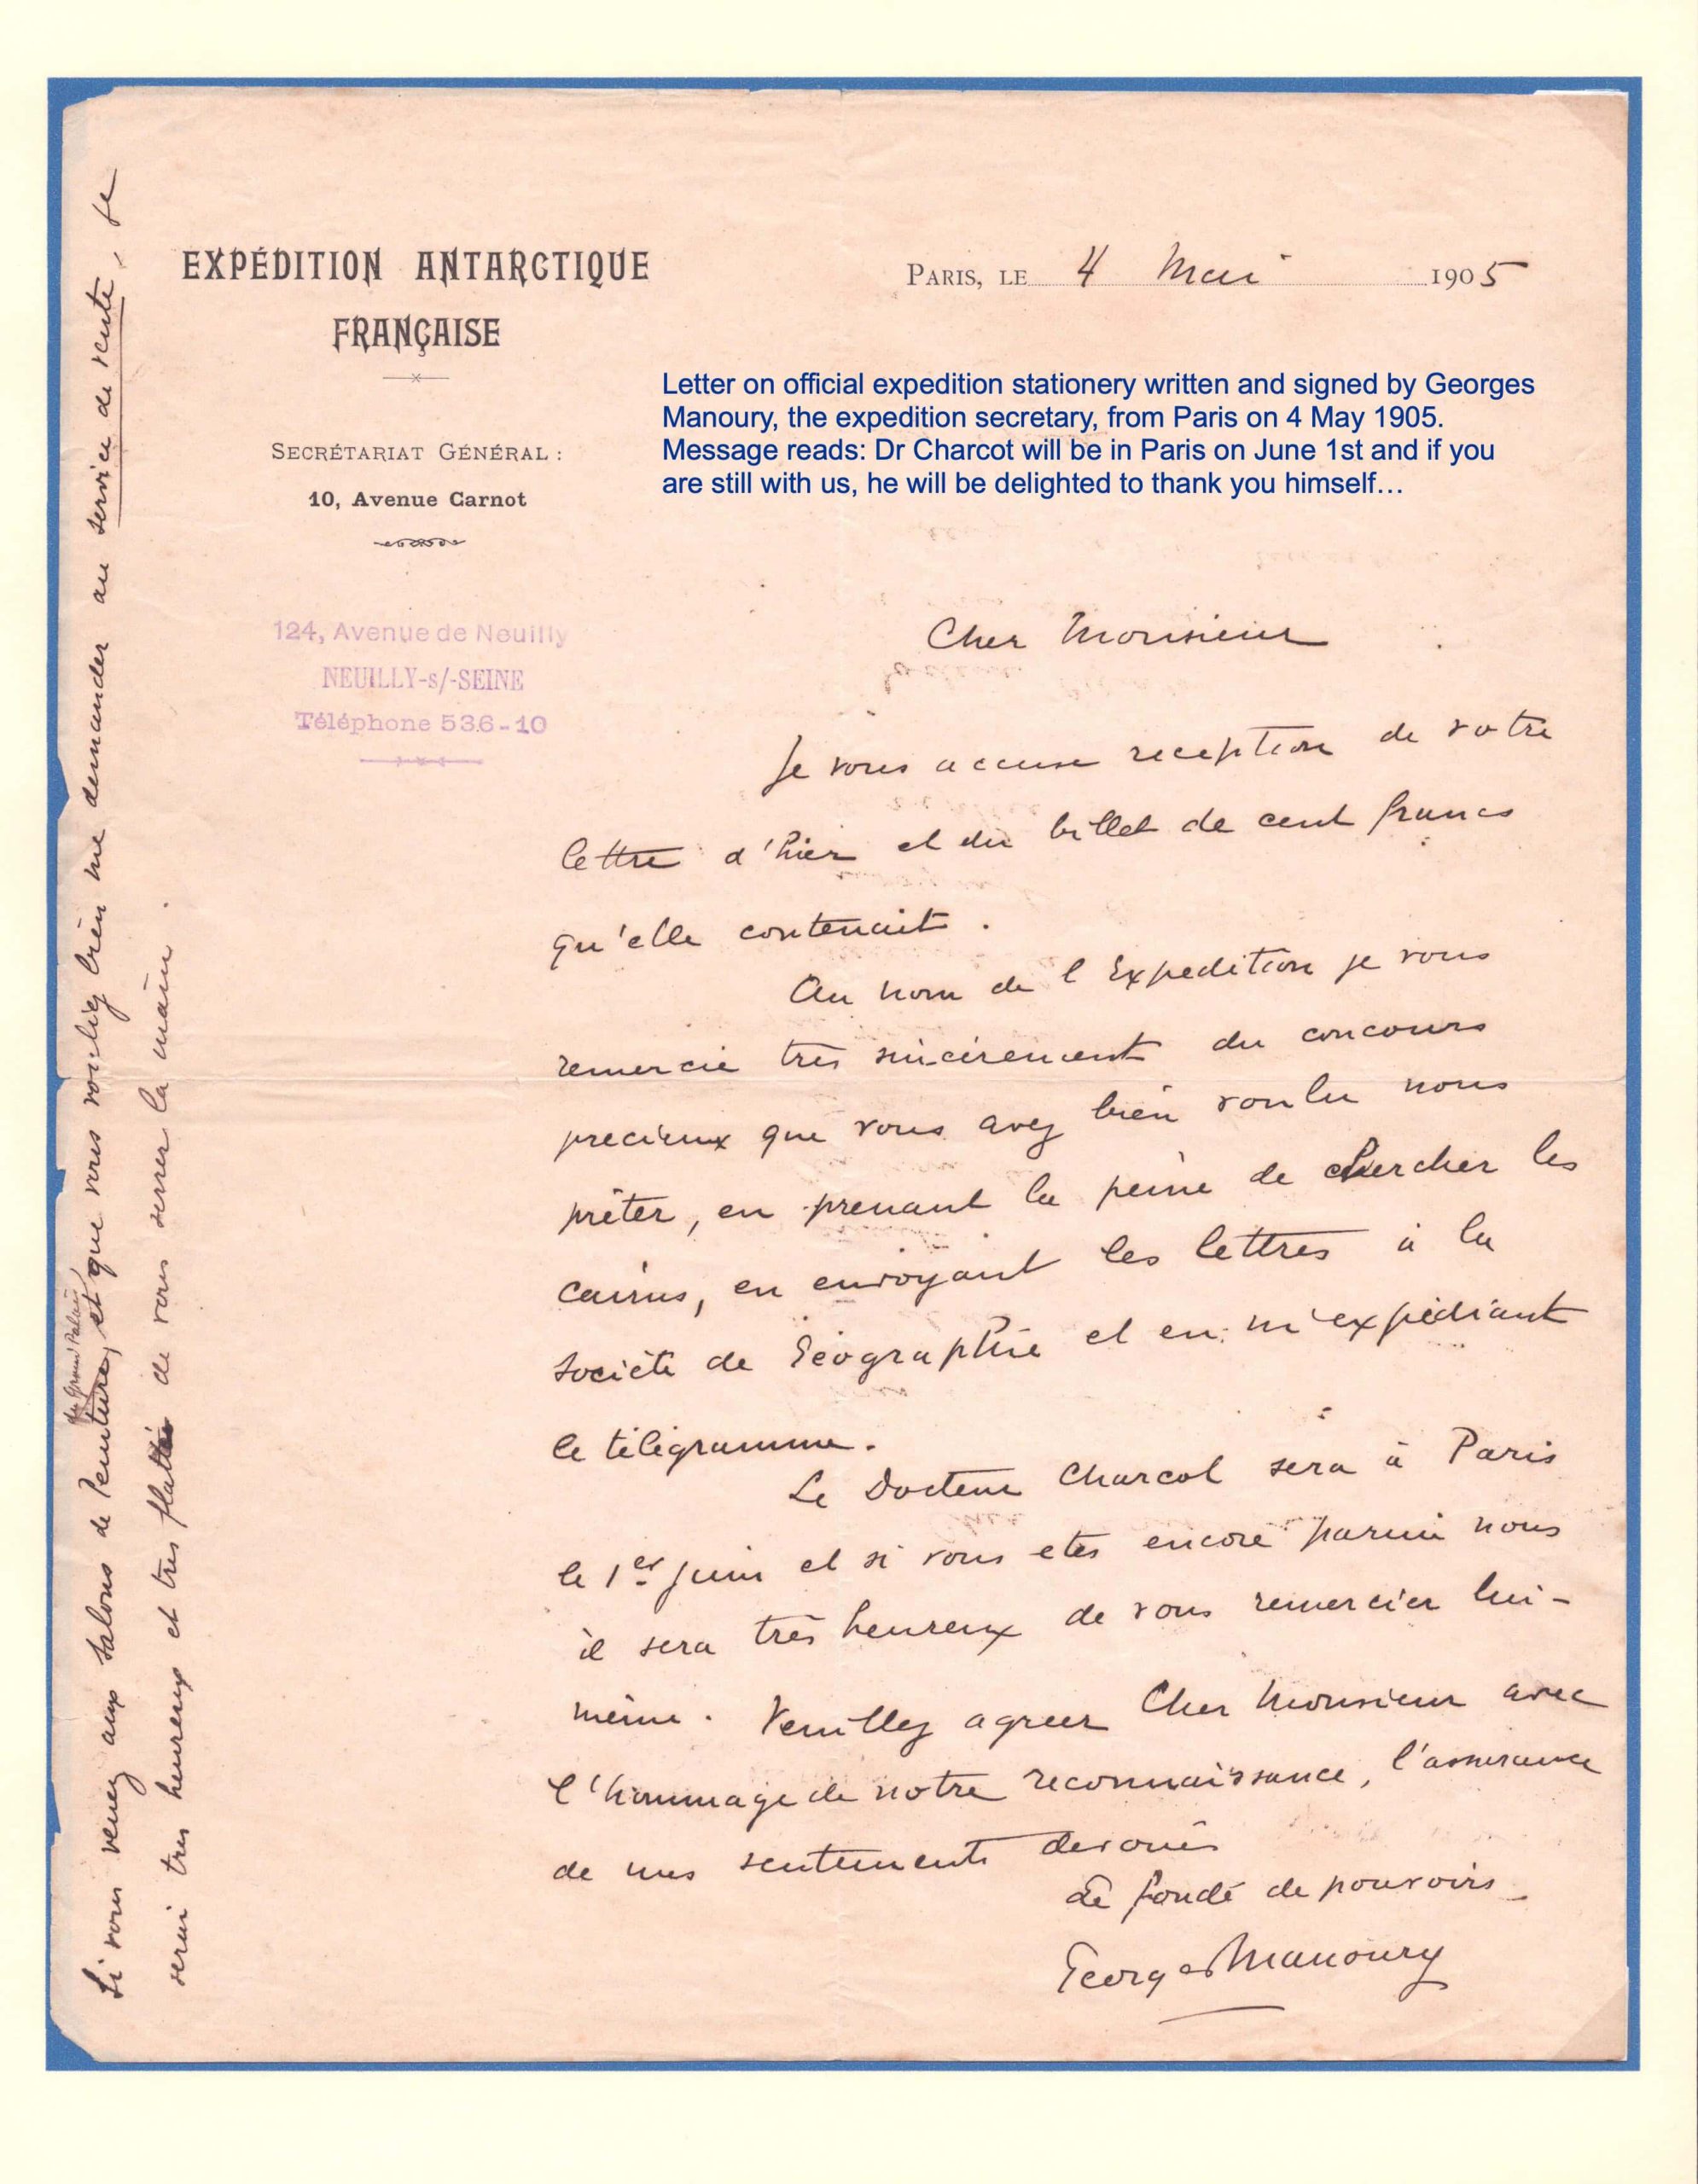 EXPÉDITION ANTARCTIQUE
FRANÇAISE
SECRÉTARIAT GÉNÉRAL :
10, Avenue Carnot
124, Avenue de Neuilly
NEUILLY-s/-SEINE
Téléphone 536-10
PARIS, LE 4 Mai 1905
Letter on official expedition stationery written and signed by Georges
Manoury, the expedition secretary, from Paris on 4 May 1905.
Message reads: Dr Charcot will be in Paris on June 1st and if you
are still with us, he will be delighted to thank you himself…
Cher Monsieur
Je vous accuse reception de votre
lettre d'hier et du billet de cent francs
qu'elle contenait.
Au nom de l Expedition je vous
remercie très sincèrement du concours
precieux que vous avez bien voulu nous
prêter, en prenant la peine de chercher les
en envoyant les lettres à la
Société de Géographie et en m'expédiant
le télégramme.
Le Docteur Charcot sera à Paris
le 1er juin et si vous etes encore parmi nous
il sera très heureux de vous remercier lui-
même. Veuillez agreer Cher Monsieur avec
l'hommage de notre reconnaissance, l'assurance
de mes sentiments devoués
Le fondé de pouvoirs
Georges Manoury
Si vous venez aux Salons de Peinture, du Grand Palais, et que vous vouliez bien me demander au service de vente, je
serai très heureux et très flatté de vous serrer la main.